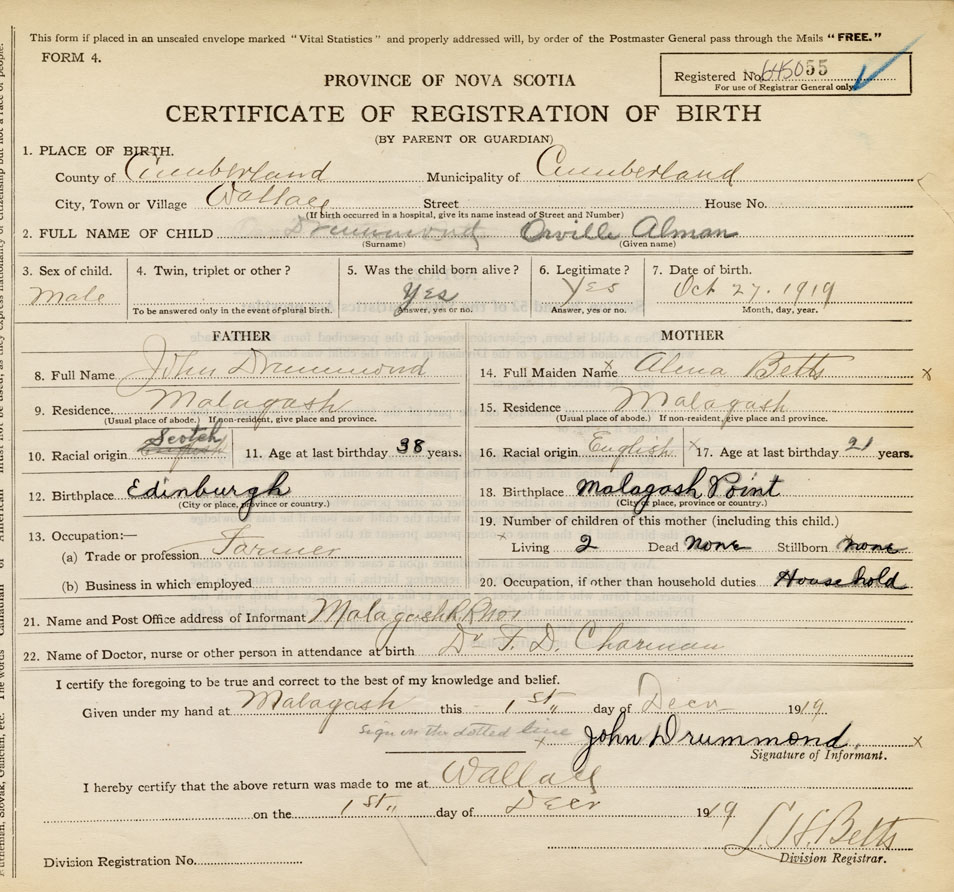 This form if placed in an unsealed envelope marked "Vital Statistics" and properly addressed will, by order of the Postmaster General pass through the Mails "FREE."
FORM 4.
Registered No. 55
For use of Registrar General only.
PROVINCE OF NOVA SCOTIA
CERTIFICATE OF REGISTRATION OF BIRTH
(BY PARENT OR GUARDIAN)
1. PLACE OF BIRTH.
County of Cumberland Municipality of Cumberland
City, Town or Village Wallace Street House No.
(If birth occurred in a hospital, give its name instead of Street and Number)
2. FULL NAME OF CHILD Drummond Orville Alman
(Surname) (Given name)
3. Sex of child. 4. Twin, triplet or other? 5. Was the child born alive? 6. Legitimate? 7. Date of birth.
Male Yes Yes Oct 27. 1919
To be answered only in the event of plural birth. Answer, yes or no. Answer, yes or no. Month, day, year.
FATHER MOTHER
8. Full Name John Drummond 14. Full Maiden Name x Alma Betts x
9. Residence. Malagash 15. Residence Malagash
(Usual place of abode.) If non-resident, give place and province. (Usual place of abode.) If non-resident, give place and province.
Scotch
10. Racial origin English 11. Age at last birthday 38 years. 16. Racial origin English x 17. Age at last birthday 21 years.
12. Birthplace Edinburgh 18. Birthplace Malagash Point
(City or place, province or country.) (City or place, province or country.)
13. Occupation:— 19. Number of children of this mother (including this child.)
(a) Trade or profession Farmer x Living 2 Dead none Stillborn none
(b) Business in which employed 20. Occupation, if other than household duties Household
21. Name and Post Office address of Informant Malagash
22. Name of Doctor, nurse or other person in attendance at birth Dr F. D. Charman
I certify the foregoing to be true and correct to the best of my knowledge and belief.
Given under my hand at Malagash this 1st day of Decr 1919
Sign on the dotted line x John Drummond x
Signature of Informant.
I hereby certify that the above return was made to me at Wallace
on the 1st day of Decr 1919.
L. H. Betts
Division Registration No. Division Registrar.